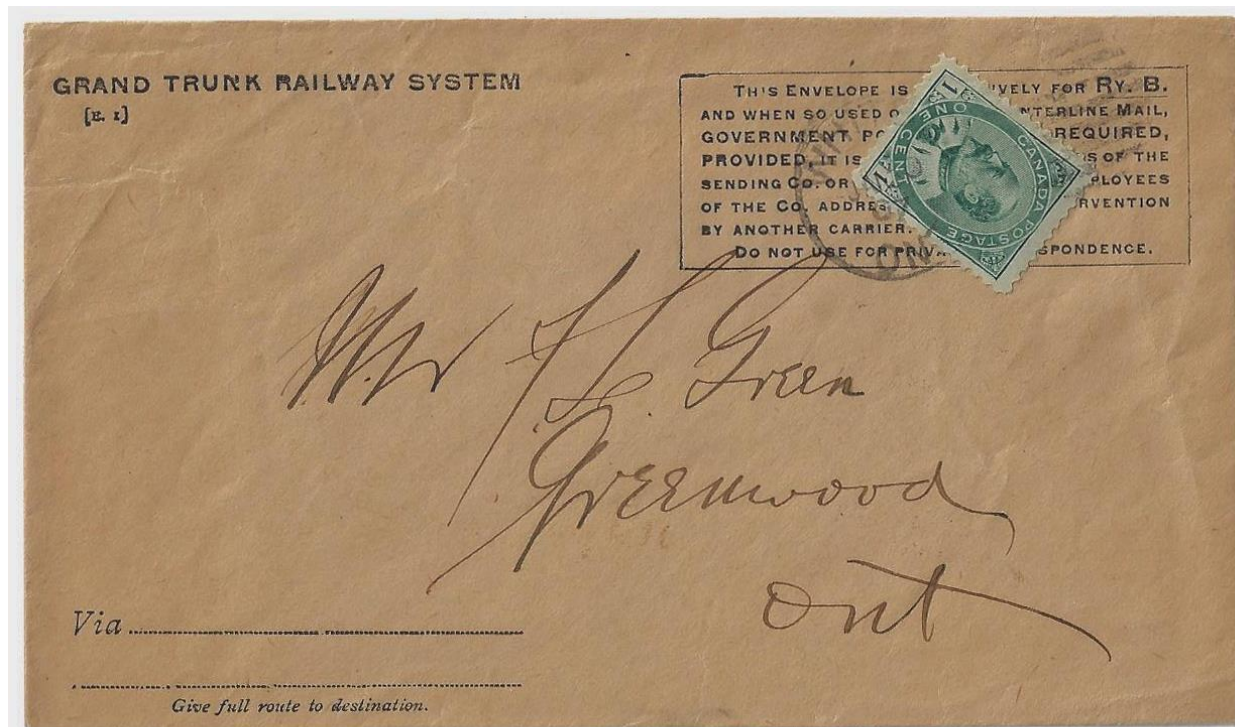 GRAND TRUNK RAILWAY SYSTEM
[E. 1]
THIS ENVELOPE IS IVELY FOR RY. B.
AND WHEN SO USED O NTERLINE MAIL,
GOVERNMENT PO REQUIRED,
PROVIDED, IT IS S OF THE
SENDING CO. OR PLOYEES
OF THE CO. ADDRES RVENTION
BY ANOTHER CARRIER.
DO NOT USE FOR PRIVA SPONDENCE.
CANADA POSTAGE
ONE CENT
1
1
ONT
Mr F L. Green
Greenwood
Ont
Via
Give full route to destination.